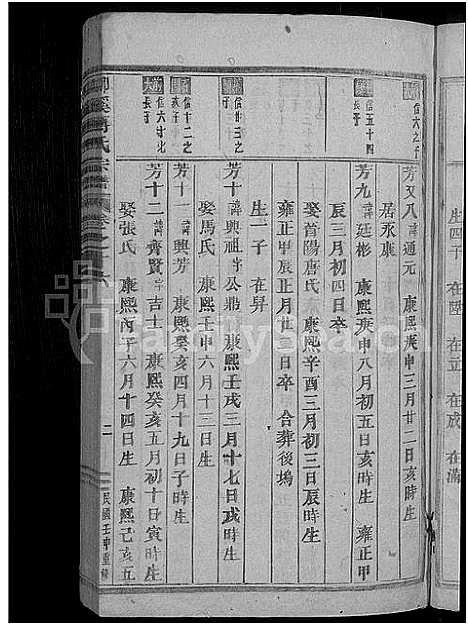 生四子 在陞 在立 在成 在滿
信六之子
芳又八諱通元 康熙庚申三月廿二日亥時生
居永康
信五十四
長子
芳九諱廷彬 康熙庚申八月初五日亥時生 雍正甲
辰三月初四日卒
娶首陽唐氏 康熙辛酉三月初三日辰時生
雍正甲辰正月廿 日卒 合葬後塢
生一子 在昇
信廿三之
子
芳十諱興祖字公鼎 康熙壬戌三月十七日戌時生
娶馬氏 康熙壬申六月十一日
信十二之
次子
芳十一諱興芳 康熙癸亥四月十九日子時生
信六十比
長子
芳十二諱齊賢字吉士 康熙癸亥五月初十日寅時生
娶張氏 康熙丙子六月十四日生 康熙己亥五
氏宗譜 卷之十六 二 民國壬申重修
FamilySearch